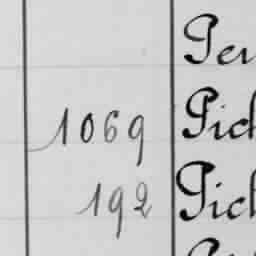 Per
1069 Pich
192 Pich